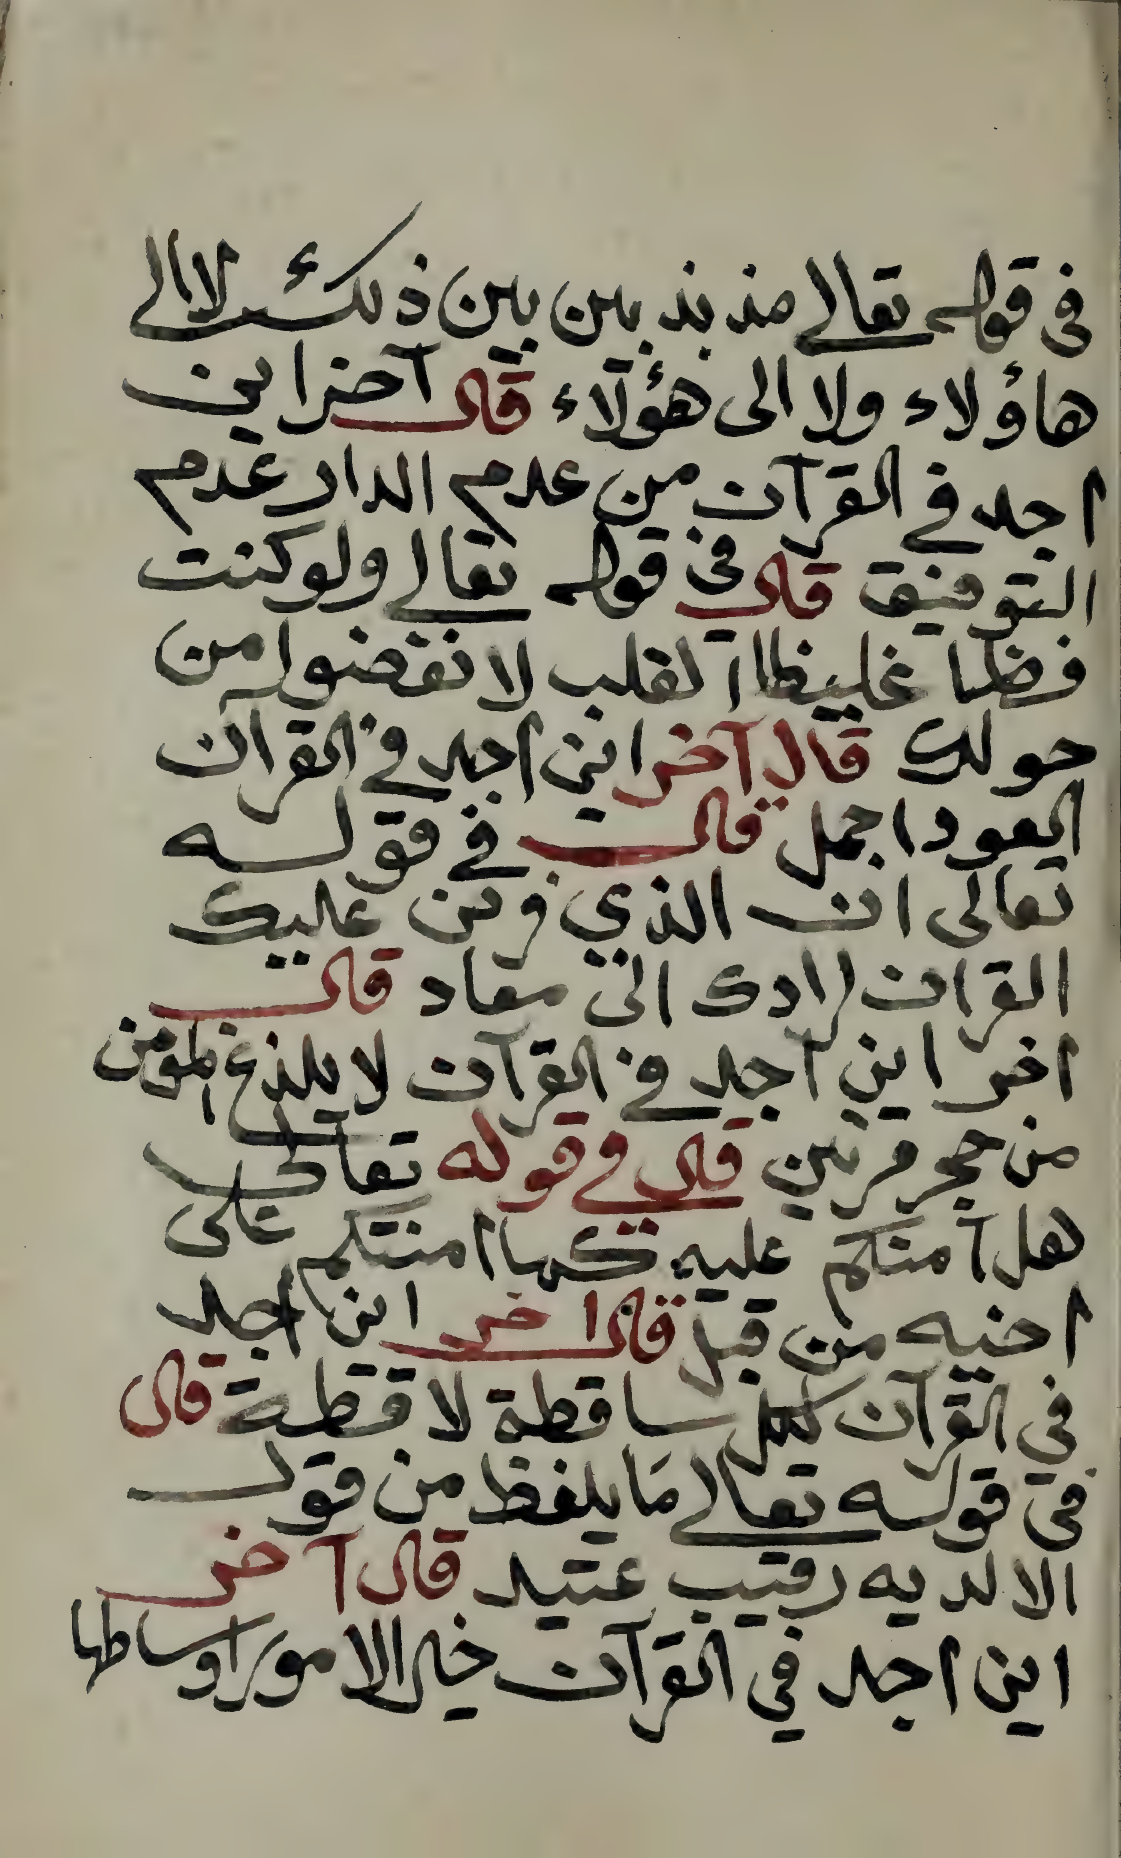 في قوله تعالى مذبذبين بين ذلك لا الى
هاؤلاء ولا الى هؤلاء قال آخر اين
اجد في القرآن من عدم الدار عدم
التوفيق قال في قوله تعالى ولو كنت
فظا غليظ القلب لا نفضوا من
حولك قال آخر اين اجد في القران
العود اجمل قال في قوله
تعالى ان الذي فرض عليك
القران لرادك الى معاد قال
اخر اين اجد في القرآن لا يلذغ المؤمن
من حجر مرتين قال في قوله تعالى
هل آمنكم عليه كما امنتكم على
اخيه من قبل قال اخر اين اجد
في القرآن لكل ساقطة لاقطة قال
في قوله تعالى مَا يلفظ من قول
الا لديه رقيب عتيد قال آخر
اين اجد في القرآن خير الامور اوساطها